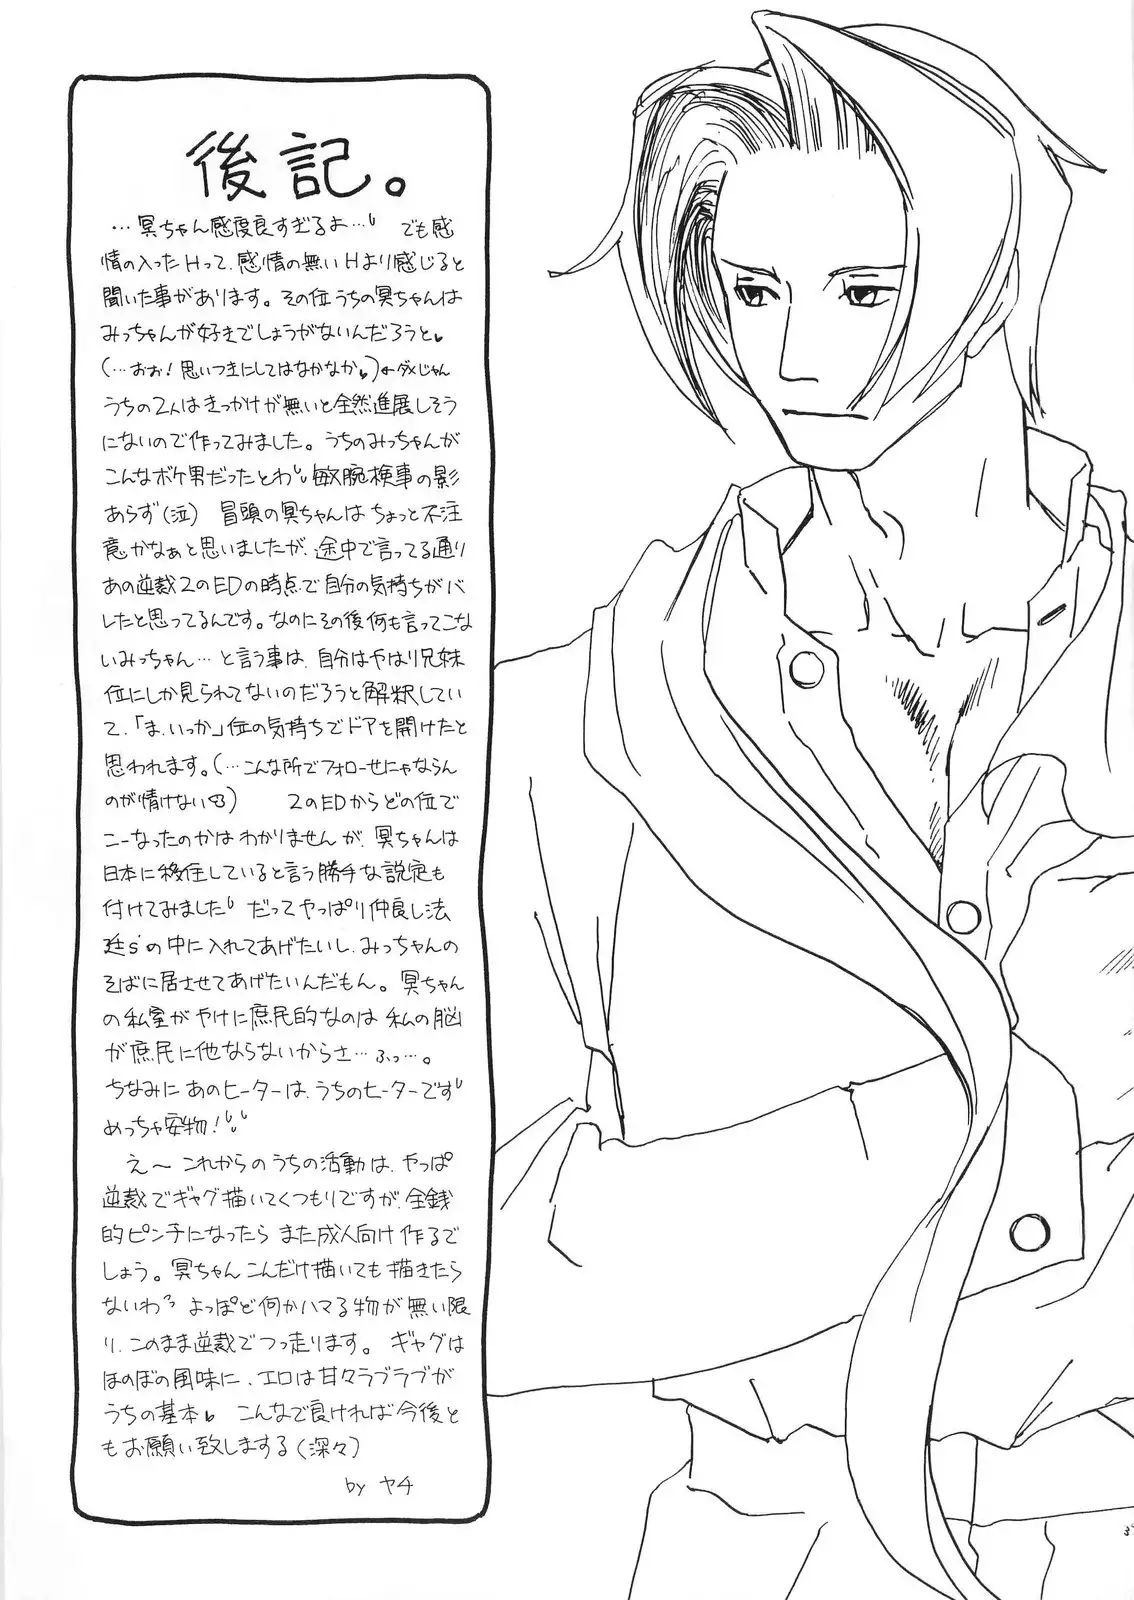 後記。
…冥ちゃん感度良すぎるよ… でも感
情の入ったHって、感情の無いHより感じると
聞いた事があります。その位うちの冥ちゃんは
みっちゃんが好きでしょうがないんだろうと。
(…おお!思いつきにしてはなかなか)←ダメじゃん
うちの2人はきっかけが無いと全然進展しそう
にないので作ってみました。うちのみっちゃんが
こんなボケ男だったとわ 敏腕検事の影
あらず(泣) 冒頭の冥ちゃんはちょっと不注
意かなぁと思いましたが、途中で言ってる通り
あの逆裁2のEDの時点で自分の気持ちがバ
レたと思ってるんです。なのにその後何も言ってこな
いみっちゃん…と言う事は、自分はやはり兄妹
位にしか見られてないのだろうと解釈してい
て、「ま、いっか」位の気持ちでドアを開けたと
思われます。(…こんな所でフォローせにゃならん
のが情けない) 2のEDからどの位で
こーなったのかはわかりませんが、冥ちゃんは
日本に移住していると言う勝手な設定も
付けてみました だってやっぱり仲良し法
廷s'の中に入れてあげたいし、みっちゃんの
そばに居させてあげたいんだもん。冥ちゃん
の私室がやけに庶民的なのは私の脳
が庶民に他ならないからさ…ふっ…。
ちなみにあのヒーターは、うちのヒーターです
めっちゃ安物!
え〜これからのうちの活動は、やっぱ
逆裁でギャグ描いてくつもりですが、金銭
的ピンチになったらまた成人向け作るで
しょう。冥ちゃんこんだけ描いても描きたら
ないわ よっぽど何かハマる物が無い限
り、このまま逆裁でつっ走ります。ギャグは
ほのぼの風味に、エロは甘々ラブラブが
うちの基本 こんなで良ければ今後と
もお願い致しまする(深々)
by ヤチ